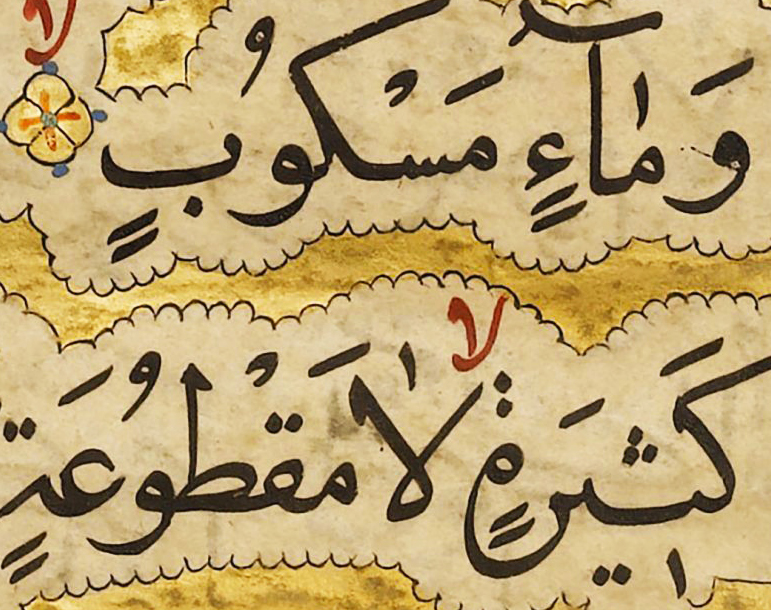 وَمَآءٍ مَسْكُوبٍ لا
كَثِيرَةٍ لا لَا مَقْطُوعَةٍ